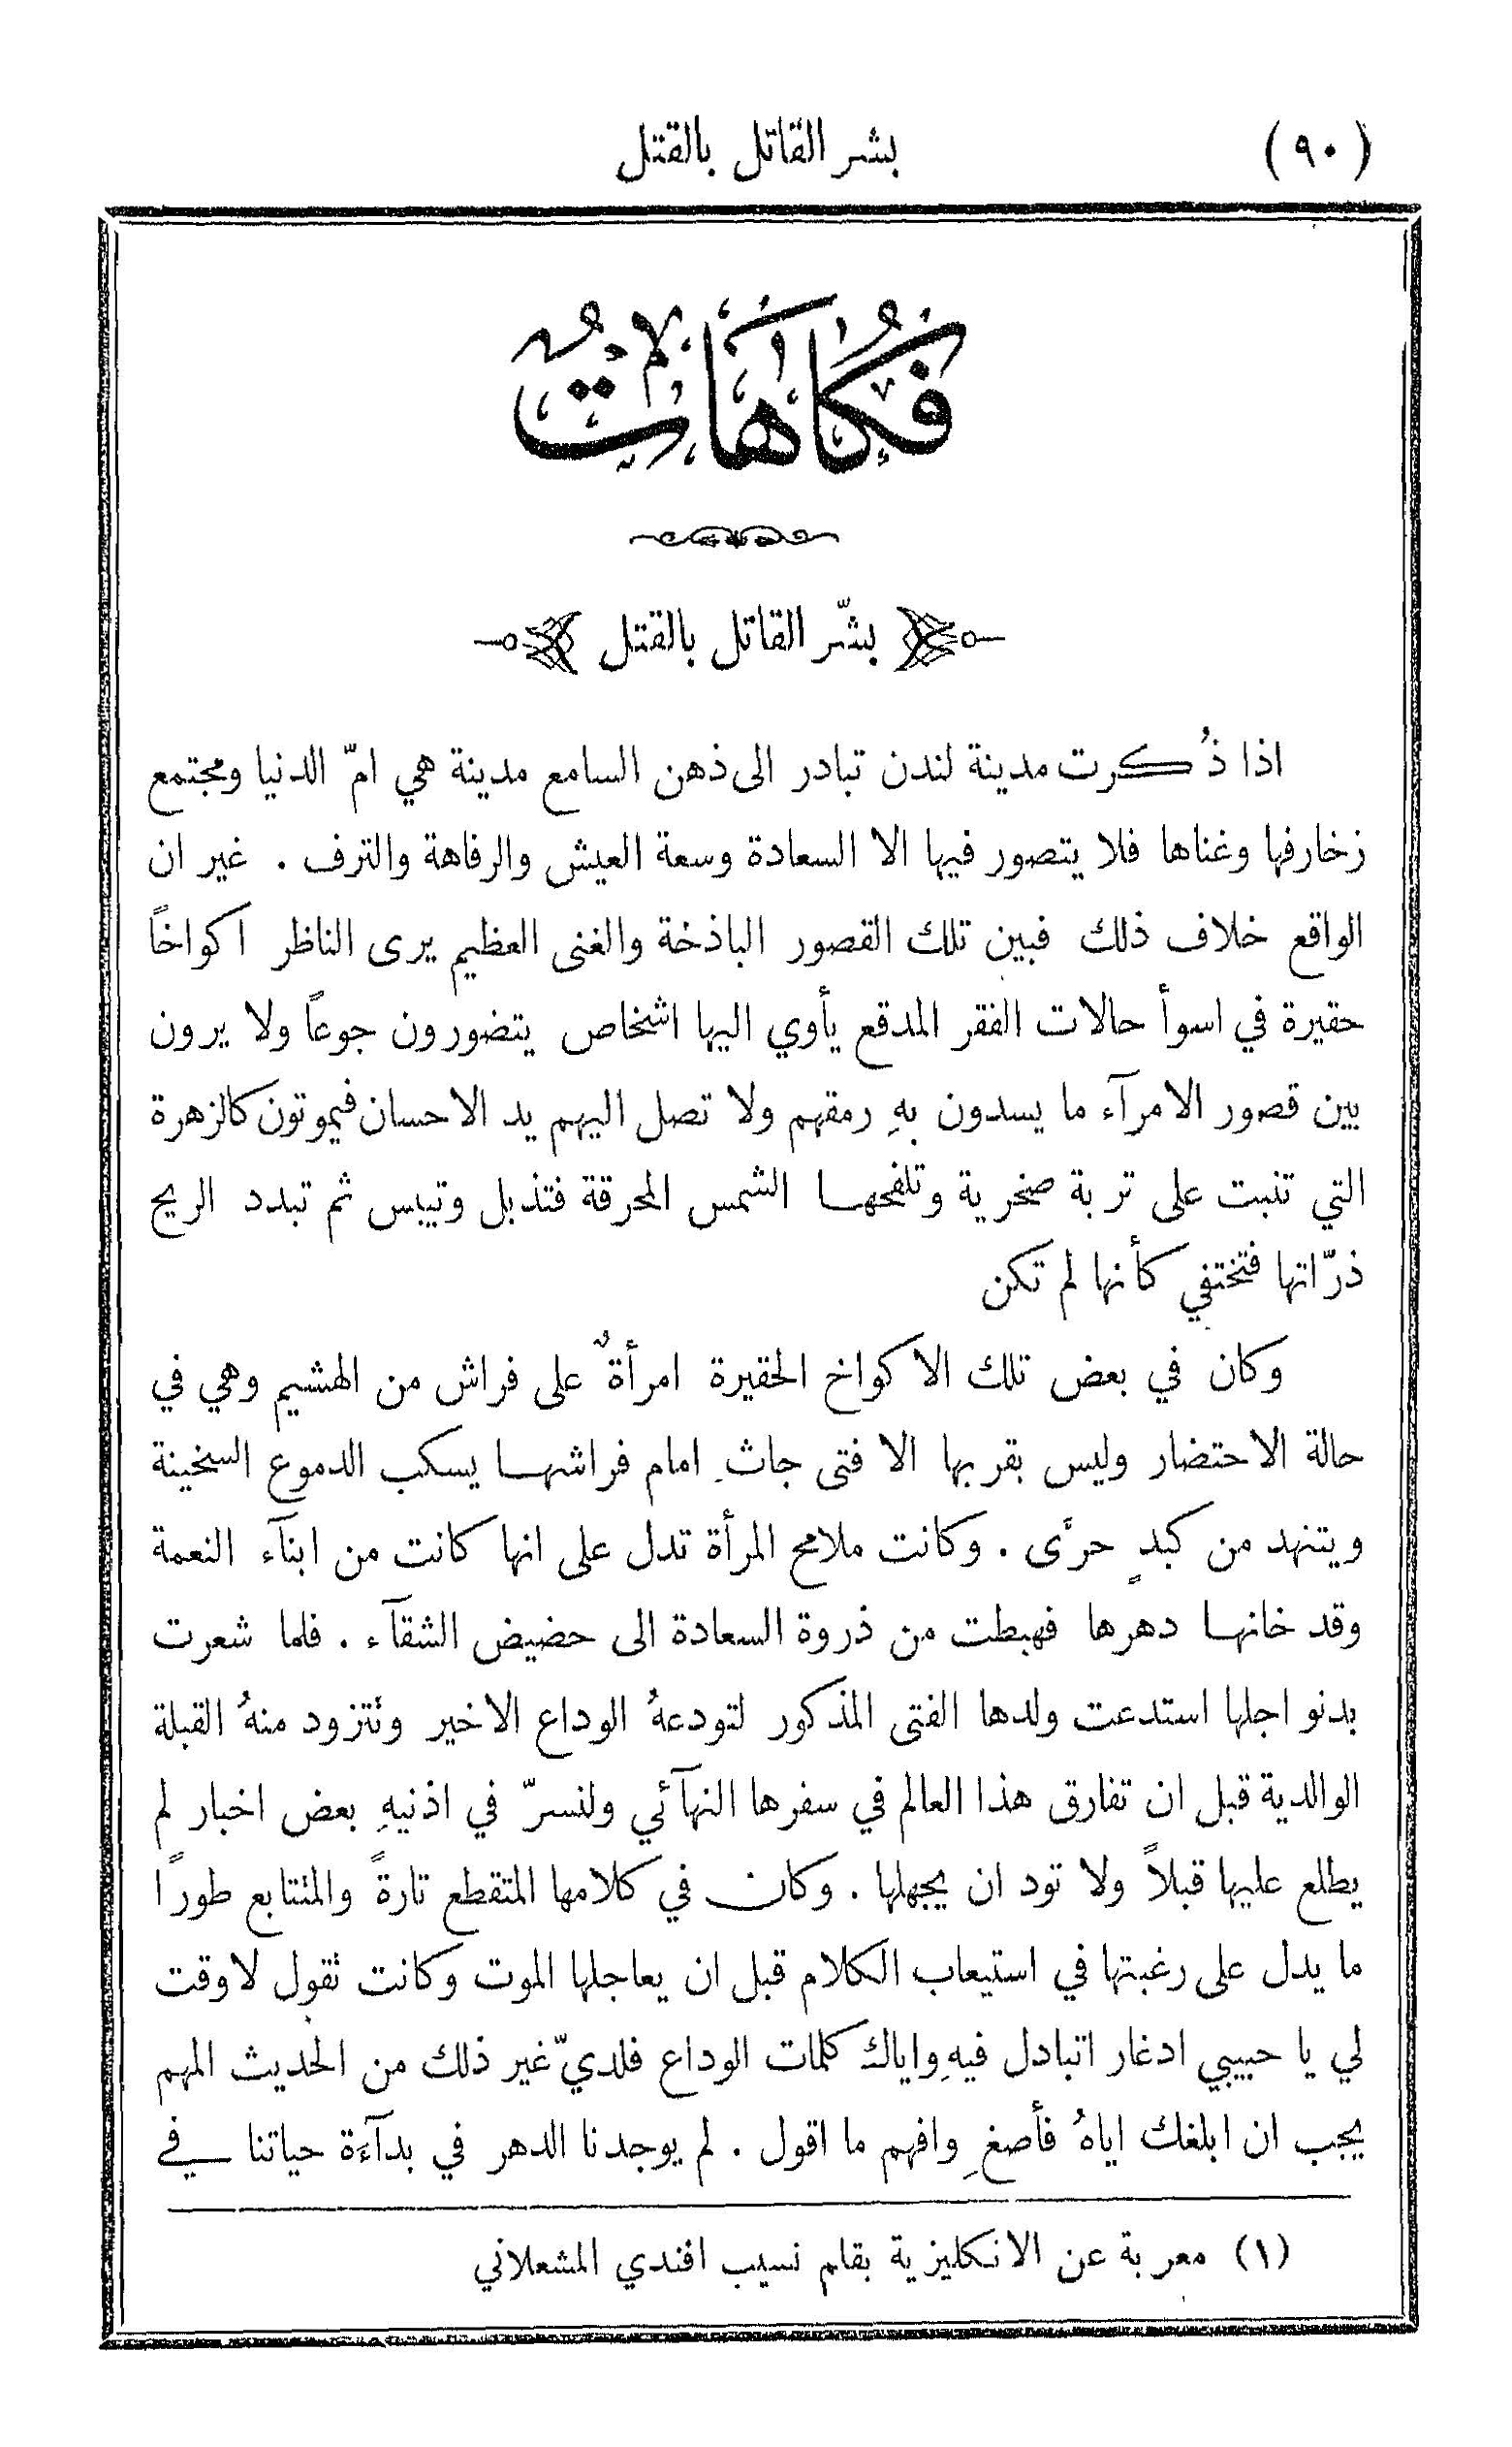 (٩٠) بشر القاتل بالقتل
فُكَاهَاتٌ
بشّر القاتل بالقتل
اذا ذُكرت مدينة لندن تبادر الى ذهن السامع مدينة هي امّ الدنيا ومجتمع
زخارفها وغناها فلا يتصور فيها الا السعادة وسعة العيش والرفاهة والترف . غير ان
الواقع خلاف ذلك فبين تلك القصور الباذخة والغنى العظيم يرى الناظر اكواخاً
حقيرة في اسوأ حالات الفقر المدقع يأوي اليها اشخاص يتضورون جوعاً ولا يرون
بين قصور الامرآء ما يسدون بهِ رمقهم ولا تصل اليهم يد الاحسان فيموتون كالزهرة
التي تنبت على تربة صخرية وتلفحها الشمس المحرقة فتذبل وتيبس ثم تبدد الريح
ذرّاتها فتختفي كأنها لم تكن
وكان في بعض تلك الاكواخ الحقيرة امرأةٌ على فراش من الهشيم وهي في
حالة الاحتضار وليس بقربها الا فتى جاثِ امام فراشها يسكب الدموع السخينة
ويتنهد من كبدٍ حرَّى . وكانت ملامح المرأة تدل على انها كانت من ابنآء النعمة
وقد خانها دهرها فهبطت من ذروة السعادة الى حضيض الشقآء . فلما شعرت
بدنو اجلها استدعت ولدها الفتى المذكور لتودعهُ الوداع الاخير وتتزود منهُ القبلة
الوالدية قبل ان تفارق هذا العالم في سفرها النهآئي ولتسرّ في اذنيهِ بعض اخبار لم
يطلع عليها قبلاً ولا تود ان يجهلها . وكان في كلامها المتقطع تارةً والمتتابع طورًا
ما يدل على رغبتها في استيعاب الكلام قبل ان يعاجلها الموت وكانت تقول لا وقت
لي يا حبيبي ادغار اتبادل فيهِ واياك كلمات الوداع فلديّ غير ذلك من الحديث المهم
يجب ان ابلغك اياهُ فأصغِ وافهم ما اقول . لم يوجدنا الدهر في بدآءة حياتنا في
(١) معربة عن الانكليزية بقلم نسيب افندي المشعلاني